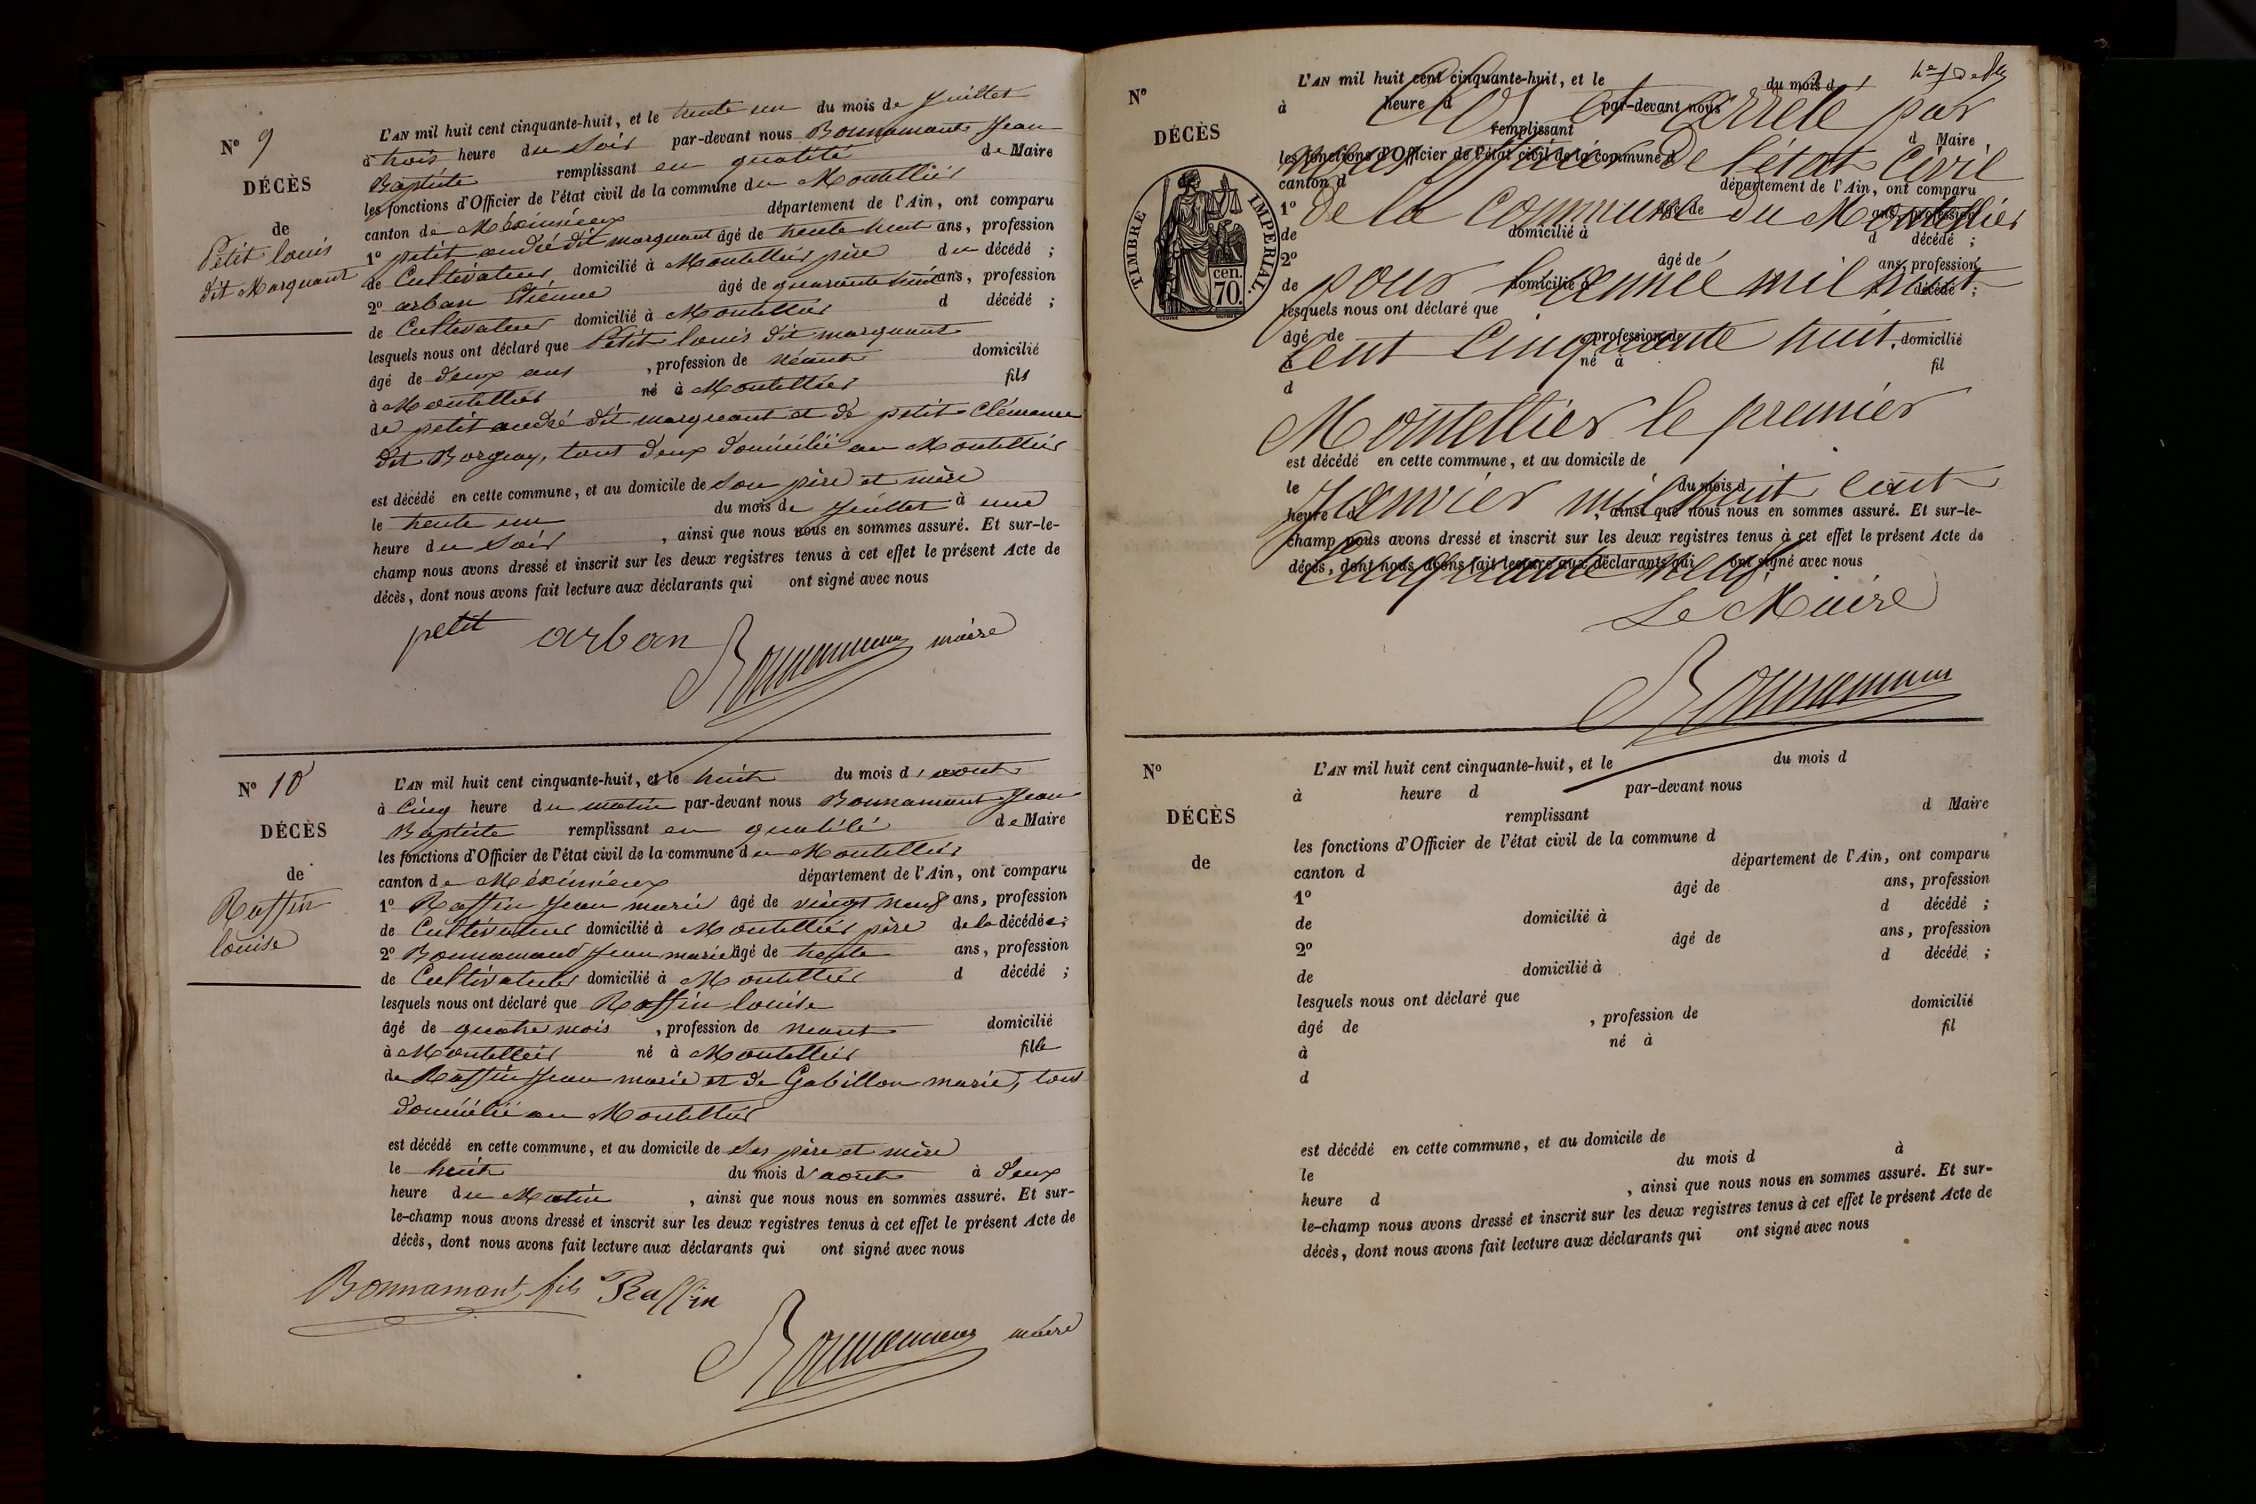 N° 9
DÉCÈS
de
Petit louis
dit Marquant
L'AN mil huit cent cinquante-huit, et le trente un du mois de Juillet
à trois heure du Soir par-devant nous Bonnamant Jean
Baptiste remplissant en qualité de Maire
les fonctions d'Officier de l'état civil de la commune du Montellier
canton de Méximieux département de l'Ain, ont comparu
1° petit andré dit marquant âgé de trente huit ans, profession
de Cultivateur domicilié à Montellier père du décédé ;
2° arban Etienne âgé de quarante huit ans, profession
de Cultivateur domicilié à Montellier d décédé ;
lesquels nous ont déclaré que Petit louis dit marquant
âgé de deux ans , profession de néant domicilié
à Montellier né à Montellier fils
de petit andré dit marquant et de petit Clémence
dit Borguay, tout deux domicilié au Montellier
est décédé en cette commune, et au domicile de Son père et mère
le trente un du mois de Juillet à une
heure du Soir , ainsi que nous nous en sommes assuré. Et sur-le-
champ nous avons dressé et inscrit sur les deux registres tenus à cet effet le présent Acte de
décès, dont nous avons fait lecture aux déclarants qui ont signé avec nous
petit arban Bonnamant maire
N° 10
DÉCÈS
de
Raffin
louise
L'AN mil huit cent cinquante-huit, et le huit du mois d'aout
à Cinq heure du matin par-devant nous Bonnamant Jean
Baptiste remplissant en qualité de Maire
les fonctions d'Officier de l'état civil de la commune du Montellier
canton de Méximieux département de l'Ain, ont comparu
1° Raffin Jean marie âgé de vingt neuf ans, profession
de Cultivateur domicilié à Montellier père de la décédée ;
2° Bonnamant Jean marie âgé de trente ans, profession
de Cultivateur domicilié à Montellier d décédé ;
lesquels nous ont déclaré que Raffin louise
âgé de quatre mois , profession de néant domicilié
à Montellier né à Montellier fille
de Raffin Jean marie et de Gabillon marie, tout
domicilié au Montellier
est décédé en cette commune, et au domicile de Ses père et mère
le huit du mois d'aout à deux
heure du Matin , ainsi que nous nous en sommes assuré. Et sur-
le-champ nous avons dressé et inscrit sur les deux registres tenus à cet effet le présent Acte de
décès, dont nous avons fait lecture aux déclarants qui ont signé avec nous
Bonnamant fils Raffin
Bonnamant maire
N°
DÉCÈS
TIMBRE IMPERIAL
cen.
70.
L'AN mil huit cent cinquante-huit, et le du mois d
à heure d par-devant nous
remplissant d Maire
les fonctions d'Officier de l'état civil de la commune d
canton d département de l'Ain, ont comparu
1° âgé de ans, profession
de domicilié à d décédé ;
2° âgé de ans, profession
de domicilié à d décédé ;
lesquels nous ont déclaré que
âgé de , profession de domicilié
à né à fil
d
est décédé en cette commune, et au domicile de
le du mois d à
heure d , ainsi que nous nous en sommes assuré. Et sur-le-
champ nous avons dressé et inscrit sur les deux registres tenus à cet effet le présent Acte de
décès, dont nous avons fait lecture aux déclarants qui ont signé avec nous
Clos et arrêté par
nous officier de l'état Civil
de la Commune du Montellier
pour l'année mil huit
cent Cinquante huit.
Montellier le premier
Janvier mil huit cent
Cinquante neuf.
Le Maire
Bonnamant
N°
DÉCÈS
de
L'AN mil huit cent cinquante-huit, et le du mois d
à heure d par-devant nous
remplissant d Maire
les fonctions d'Officier de l'état civil de la commune d
canton d département de l'Ain, ont comparu
1° âgé de ans, profession
de domicilié à d décédé ;
2° âgé de ans, profession
de domicilié à d décédé ;
lesquels nous ont déclaré que
âgé de , profession de domicilié
à né à fil
d
est décédé en cette commune, et au domicile de
le du mois d à
heure d , ainsi que nous nous en sommes assuré. Et sur-
le-champ nous avons dressé et inscrit sur les deux registres tenus à cet effet le présent Acte de
décès, dont nous avons fait lecture aux déclarants qui ont signé avec nous